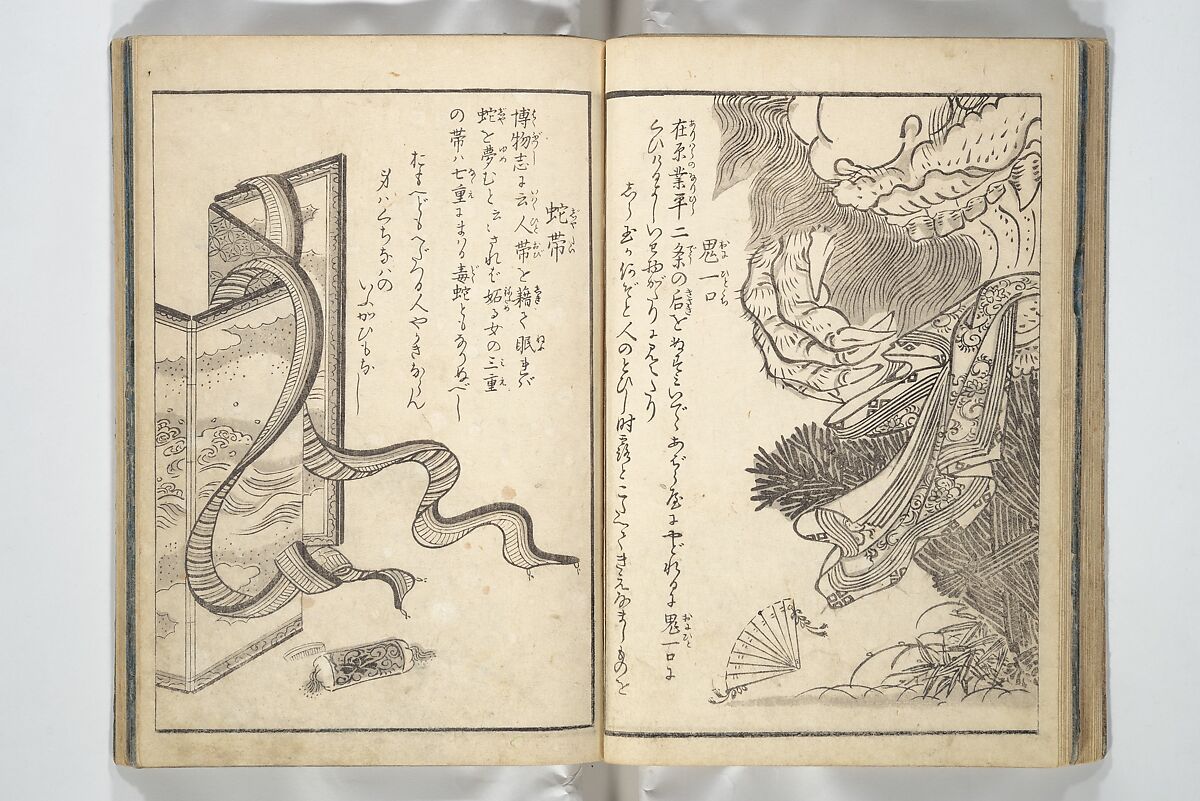 鬼一口
在原業平二条の后をぬすみいでゝあばら屋にやどれるに鬼一口に
くひけるよしいせ物がたりに見えたり
しら玉か何ぞと人のとひし時露とこたへてきえなましものを
蛇帯
博物志に云人帯を藉て眠れば
蛇を夢むと云々されば妬る女の三重
の帯は七重にまはる毒蛇ともなりぬべし
おもへどもへだつる人やかきならん
身はくちなはの
いふかひもなし